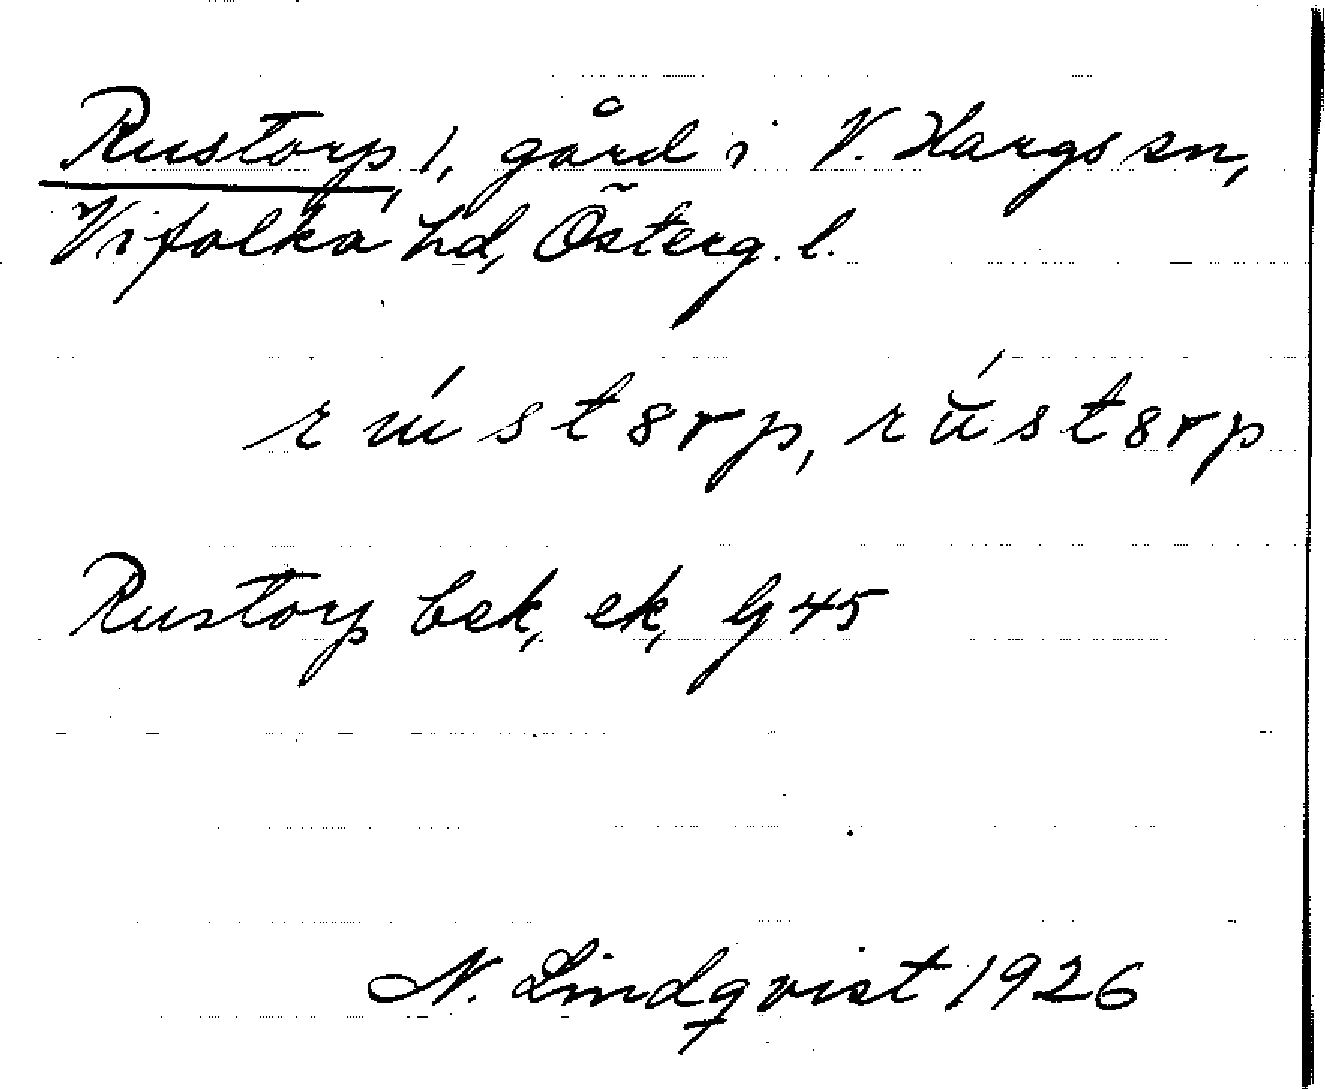 Rustorp, 1, gård i V. Hargs sn,
Vifolka hd, Österg. l.
rústorp, rústorp
Rustorp bek, ek, Gj 45
N. Lindqvist 1926